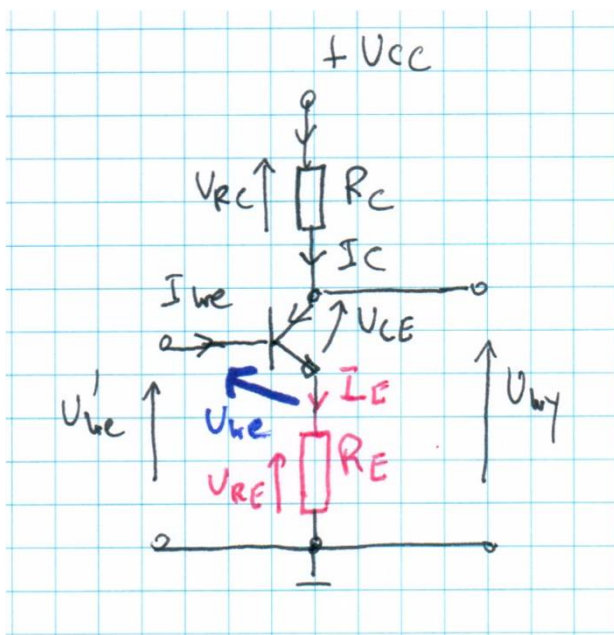 + UCC
URC
RC
IC
Iwe
UCE
U'we
Uwe
IE
Uwy
URE
RE